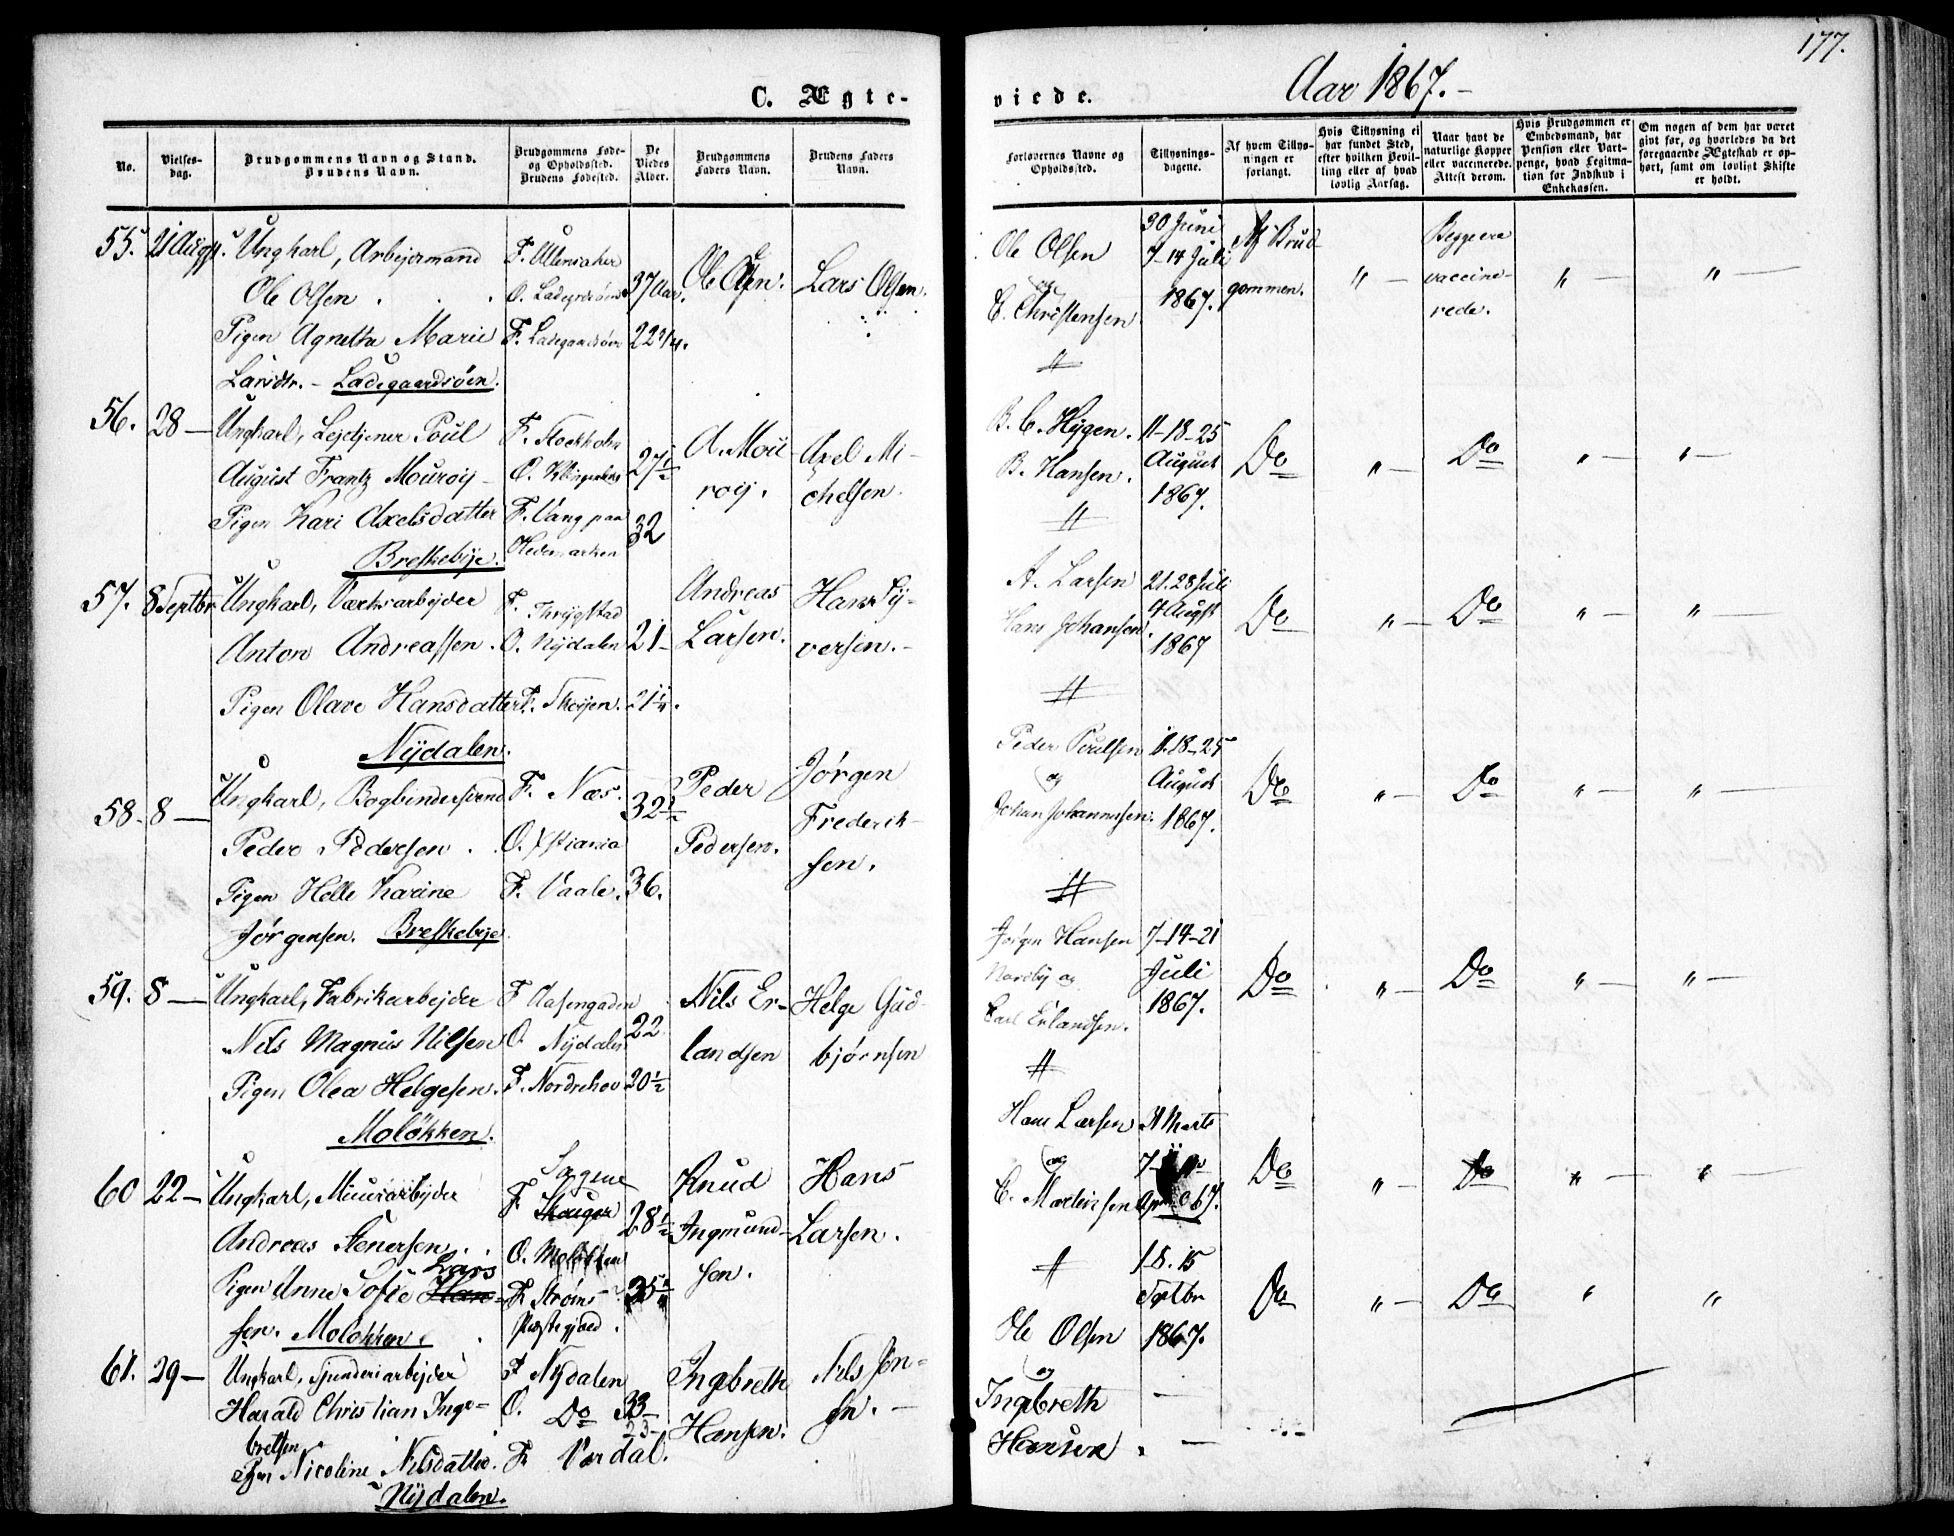 177.
C. Ægte-
viede.
Aar 1867.-
No.
Vielses-
dag.
Brudgommens Navn og Stand.
Brudens Navn.
Brudgommens Føde-
og Opholdssted.
Brudens Fødested.
De
Viedes
Alder.
Brudgommens
Faders Navn.
Brudens Faders
Navn.
Forlovernes Navne og
Opholdssted.
Tillysnings-
dagene.
Af hvem Tillys-
ningen er
forlangt.
Hvis Tillysning ei
har fundet Sted,
efter hvilken Bevil-
ling eller af hvad
lovlig Aarsag.
Naar havt de
naturlige Kopper
eller vaccinerede.
Attest derom.
Hvis Brudgommen er
Embedsmand, har
Pension eller Vart-
penge, hvad Legitima-
tion for Indskud i
Enkekassen.
Om nogen af dem har været
givt før, og hvorledes da det
foregaaende Ægteskab er op-
hørt, samt om lovligt Skifte
er holdt.
55. 21 Augst.
Ungkarl, Arbejermand
Ole Olsen
Pigen Agnethe Marie
Larsdtr. - Ladegaardsøen.
F. Ullensaker
O. Ladegrdsøen
F. Ladegaardsøen
37 Aar.
22 3/4.
Ole Olsen.
Lars Olsen.
Ole Olsen
og
C. Christensen
30 Juni
7-14 Juli
1867.
Af Brud-
gommen.
" —
Begge ere
vaccine-
rede.
" —
" —
56. 28 —
Ungkarl, Lejetjener Poul
August Frantz Mouroij -
Pigen Kari Axelsdatter
Breskebije.
F. Stockholm
O. Klingenberg
F. Vang paa
Hedemarken
27 1/2
32
A. Mou-
roij.
Axel Mi-
chelsen.
B. C. Hygen.
B. Hansen.
11-18-25
August
1867.
Do
" —
Do
" —
" —
57. 8 Septbr
Ungkarl, Værksarbejder
Anton Andreassen.
Pigen Olave Hansdatter
Nijdalen.
F. Thrygstad
O. Nijdalen
F. Skøijen.
21-
21 1/4.
Andreas
Larsen.
Hans Sij-
versen.-
A. Larsen
Hans Johansen.
21. 28 Juli
4 Augst
1867
Do
" —
Do
" —
" —
58. 8 —
Ungkarl, Bogbindersvend
Peder Pedersen.
Pigen Helle Karine
Jørgensen. Breskebije
F. Næs.
O. Xstiania
F. Vaale.
32 1/2
36.
Peder
Pedersen.
Jørgen
Frederik-
sen.
Peder Poulsen
og
Johan Johannesen.
11.18-25
August
1867.
Do
" —
Do
" —
" —
59. 8 —
Ungkarl, Fabrikarbejder
Nils Magnus Nilsen
Pigen Olea Helgesen.
Moløkken.
F. Aasengaden
O. Nijdalen
F. Nordrehov
22
20 1/2
Nils Er-
landsen
Helge Gud-
bjørnsen
Jørgen Hansen
Nordby og
Carl Erlandsen.
7-14-21
Juli
1867.
Do
" —
Do
" —
" —
60 22 —
Ungkarl, Muurarbejder
Andreas Stenersen.
Pigen Anne Sofie Lars
sen. Moløkken.
Sogne
F. Skouger
O. Moløkken
F. Strøms-
Præstegjæld.
28 1/2
Knud
Ingmund-
sen.
Hans
Larsen.
Hans Larsen
og
C. Martinsen
31 Marts
April 67.
Do
" —
Do
" —
" —
61. 29 —
Ungkarl, Spinderiarbejder
Harald Christian Inge-
bretsen
Pigen Nicoline Nilsdatter.
Nijdalen.
F. Nydalen
O. Do
F. Værdal.
33-
23-
Ingebreth
Hansen.
Nils Jen-
sen. -
Ole Olsen
og
Ingebreth
Hansen.
1-8. 15
Septbr
1867.
Do
" —
Do
"
"